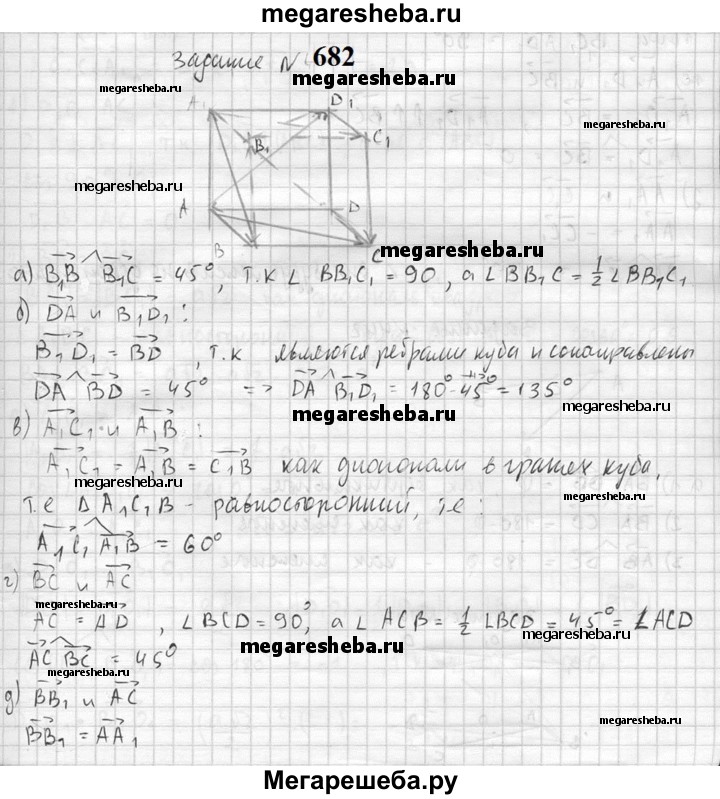 megaresheba.ru
Задание № 682
megaresheba.ru
megaresheba.ru
megaresheba.ru
megaresheba.ru
A₁ D₁
B₁ C₁
A D
B C
megaresheba.ru
а) B₁B ^ B₁C = 45°, т.к ∠ BB₁C₁ = 90, а ∠ BB₁C = 1/2 ∠ BB₁C₁
б) DA и B₁D₁ :
B₁D₁ = BD, т.к являются ребрами куба и сонаправлены
DA ^ BD = 45° => DA ^ B₁D₁ = 180° - 45° = 135°
megaresheba.ru
в) A₁C₁ и A₁B :
A₁C₁ = A₁B = C₁B как диогонали в гранях куба,
т.е Δ A₁C₁B - равносторонний, т.е :
megaresheba.ru
A₁C₁ ^ A₁B = 60°
г) BC и AC
megaresheba.ru
AC = AD, ∠ BCD = 90°, а ∠ ACB = 1/2 ∠BCD = 45° = ∠ACD
megaresheba.ru
megaresheba.ru
AC ^ BC = 45°
megaresheba.ru
д) BB₁ и AC
megaresheba.ru
BB₁ = AA₁
Мегарешеба.ру